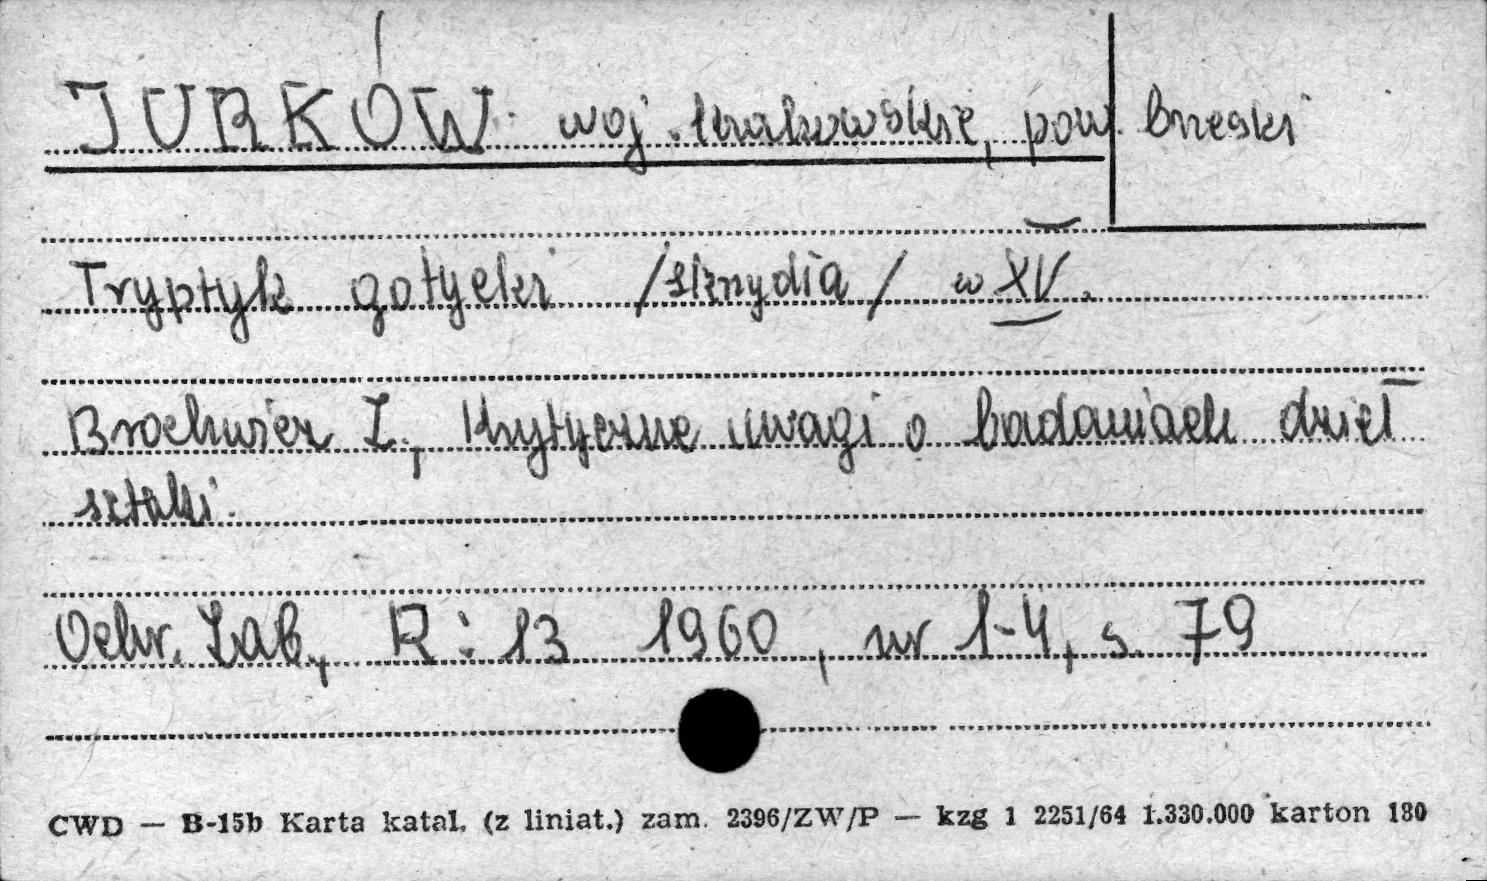 JURKÓW. woj. krakowskie, pow. brzeski
Tryptyk gotycki /skrzydła/ w XV.
Brochwicz Z., Krytyczne uwagi o badaniach dzieł
sztuki.
Ochr. Zab., R: 13 1960, nr 1-4, s. 79
CWD — B-15b Karta katal. (z liniat.) zam. 2396/ZW/P — kzg 1 2251/64 1.330.000 karton 180